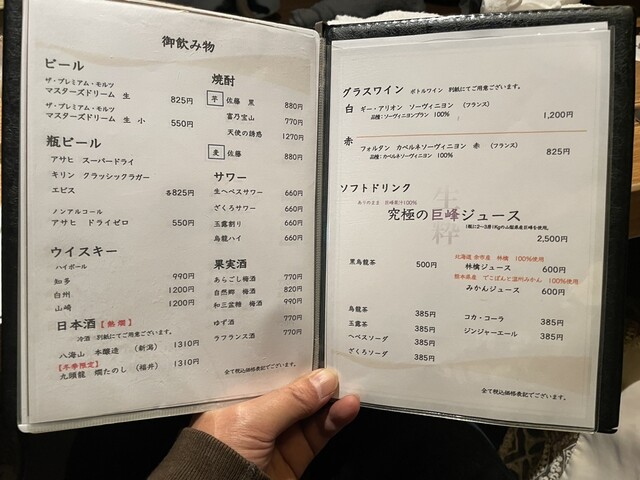 御飲み物
ビール
ザ・プレミアム・モルツ
マスターズドリーム 生 825円
ザ・プレミアム・モルツ
マスターズドリーム 生 小 550円
瓶ビール
アサヒ スーパードライ
キリン クラッシックラガー
エビス 各825円
ノンアルコール
アサヒ ドライゼロ 550円
ウイスキー
ハイボール
知多 990円
白州 1200円
山崎 1200円
日本酒【熱燗】
冷酒 別紙にてご用意ございます。
八海山 本醸造 (新潟) 1310円
【冬季限定】
九頭龍 燗たのし (福井) 1310円
焼酎
芋 佐藤 黒 880円
富乃宝山 770円
天使の誘惑 1270円
麦 佐藤 880円
サワー
生ヘベスサワー 660円
ざくろサワー 660円
玉露割り 660円
烏龍ハイ 660円
果実酒
あらごし梅酒 770円
自然郷 梅酒 820円
和三盆糖 梅酒 990円
ゆず酒 770円
ラフランス酒 770円
全て税込価格表記でございます。
グラスワイン ボトルワイン 別紙にてご用意ございます。
白 ギー・アリオン ソーヴィニヨン (フランス)
品種:ソーヴィニヨンブラン 100% 1,200円
赤 フォルタン カベルネソーヴィニヨン 赤 (フランス)
品種:カベルネソーヴィニヨン 100% 825円
ソフトドリンク
生粋
ありのまま 巨峰果汁100%
究極の巨峰ジュース
(瓶に2〜3房)1Kgの山梨県産巨峰を使用。
2,500円
黒烏龍茶 500円
北海道 余市産 林檎 100%使用
林檎ジュース 600円
熊本県産 でこぽんと温州みかん 100%使用
みかんジュース 600円
烏龍茶 385円
玉露茶 385円
ヘベスソーダ 385円
ざくろソーダ 385円
コカ・コーラ 385円
ジンジャーエール 385円
全て税込価格表記でございます。